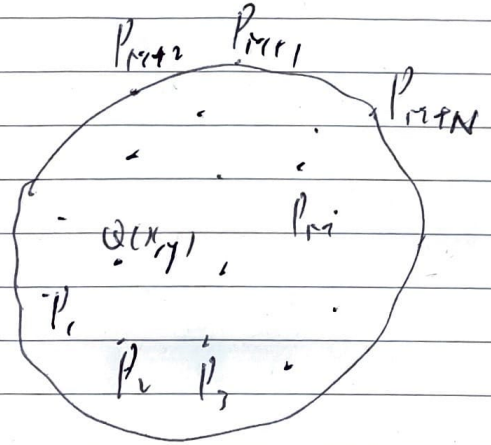 P_{M+2} P_{M+1}
P_{M+N}
P_M
Q(x,y)
P_1
P_2 P_3